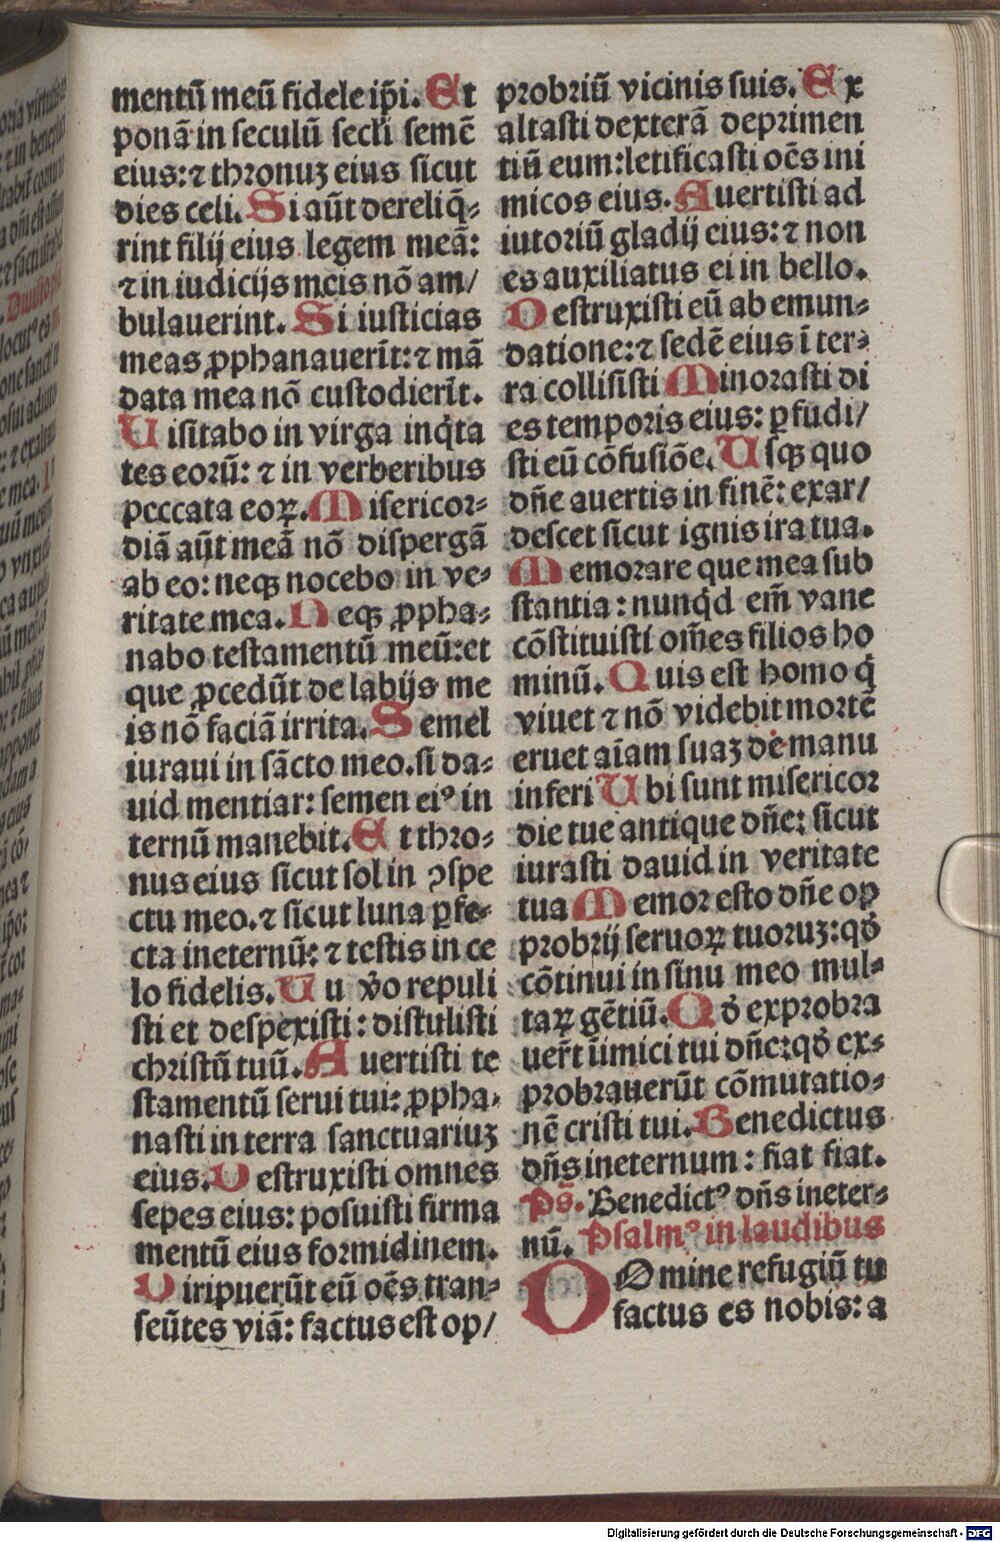 mentū meū fidele ip̄i. Et
ponā in seculū secl̄i semē
eius: ⁊ thronuꝫ eius sicut
dies celi. Si aūt dereliq̄⸗
rint filij eius legem meā:
⁊ in iudicijs meis nō am/
bulauerint. Si iusticias
meas ꝓphanauerīt: ⁊ mā
data mea nō custodierīt.
Uisitabo in virga inq̇ta
tes eorū: ⁊ in verberibus
peccata eoꝝ. Misericor⸗
diā aūt meā nō dispergā
ab eo: neqꝫ nocebo in ve⸗
ritate mea. Neqꝫ ꝓpha⸗
nabo testamentū meū: et
que ꝓcedūt de labijs me
is nō faciā irrita. Semel
iuraui in sācto meo. si da⸗
uid mentiar: semen eiꝰ in
ternū manebit. Et thro⸗
nus eius sicut sol in ꝯspe
ctu meo. ⁊ sicut luna ꝑfe⸗
cta ineternū: ⁊ testis in ce
lo fidelis. Tu v̄o repuli
sti et despexisti: distulisti
christū tuū. Auertisti te
stamentū serui tui: ꝓpha⸗
nasti in terra sanctuariuꝫ
eius. Destruxisti omnes
sepes eius: posuisti firma
mentū eius formidinem.
Diripuerūt eū oēs tran⸗
seūtes viā: factus est op/
probriū vicinis suis. Ex
altasti dexterā deprimen
tiū eum: letificasti oēs ini
micos eius. Auertisti ad
iutoriū gladij eius: ⁊ non
es auxiliatus ei in bello.
Destruxisti eū ab emun⸗
datione: ⁊ sedē eius ī ter⸗
ra collisisti Minorasti di
es temporis eius: ꝑfudi/
sti eū cōfusiōe. Usqꝫ quo
dn̄e auertis in finē: exar/
descet sicut ignis ira tua.
Memorare que mea sub
stantia: nunq̇d em̄ vane
cōstituisti om̄es filios ho
minū. Quis est homo q̇
viuet ⁊ nō videbit mortē
eruet aīam suaꝫ de manu
inferi Ubi sunt misericor
die tue antique dn̄e: sicut
iurasti dauid in veritate
tua Memor esto dn̄e op
probrij seruoꝝ tuoruꝫ: qď
cōtinui in sinu meo mul⸗
taꝝ gētiū. Qď exprobra
uer̄t inimici tui dn̄e: qď ex⸗
probrauerūt cōmutatio⸗
nē cristi tui. Benedictus
dn̄s ineternum: fiat fiat.
Ps̄. Benedictꝰ dn̄s ineter⸗
nū. Psalmꝰ in laudibus
DOmine refugiū tu
factus es nobis: a
Digitalisierung gefördert durch die Deutsche Forschungsgemeinschaft - DFG